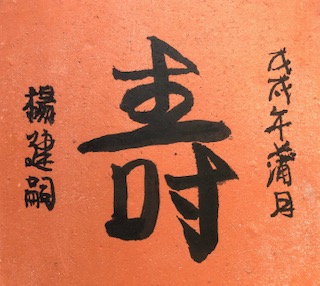 戊戌年蒲月
壽
楊建嗣